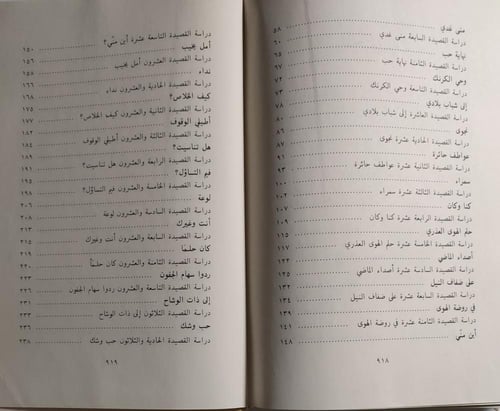 منى غدي ٥٨
دراسة القصيدة السابعة منى غدي ٦٠
نهاية حب ٦٥
دراسة القصيدة الثامنة نهاية حب ٦٧
وحي الكرنك ٧٢
دراسة القصيدة التاسعة وحي الكرنك ٧٣
إلى شباب بلادي ٧٨
دراسة القصيدة العاشرة إلى شباب بلادي ٨٠
نجوى ٨٦
دراسة القصيدة الحادية عشرة نجوى ٨٧
عواطف حائرة ٩١
دراسة القصيدة الثانية عشرة عواطف حائرة ٩٣
سمراء ١٠٠
دراسة القصيدة الثالثة عشرة سمراء ١٠٢
كنا وكان ١٠٧
دراسة القصيدة الرابعة عشرة كنا وكان ١١٠
حلم الهوى العذري ١١٥
دراسة القصيدة الخامسة عشرة حلم الهوى العذري ١١٧
أصداء الماضي ١٢٢
دراسة القصيدة السادسة عشرة أصداء الماضي ١٢٥
على ضفاف النيل ١٣٢
دراسة القصيدة السابعة عشرة على ضفاف النيل ١٣٤
في روضة الهوى ١٣٩
دراسة القصيدة الثامنة عشرة في روضة الهوى ١٤١
أين منّي ١٤٨
٩١٨
دراسة القصيدة التاسعة عشرة أين منّي؟ ١٥٠
أمل يجيب ١٥٦
دراسة القصيدة العشرون أمل يجيب ١٥٨
نداء ١٦٦
دراسة القصيدة الحادية والعشرون نداء ١٦٨
كيف الخلاص؟ ١٧٥
دراسة القصيدة الثانية والعشرون كيف الخلاص؟ ١٧٧
أطيلي الوقوف ١٨٢
دراسة القصيدة الثالثة والعشرون أطيلي الوقوف ١٨٤
هل تناسيت؟ ١٨٩
دراسة القصيدة الرابعة والعشرون هل تناسيت؟ ١٩١
فيم التساؤل؟ ١٩٦
دراسة القصيدة الخامسة والعشرون فيم التساؤل؟ ١٩٨
لوعة ٢٠٦
دراسة القصيدة السادسة والعشرون لوعة ٢٠٨
أنت وغيرك ٢١٣
دراسة القصيدة السابعة والعشرون أنت وغيرك ٢١٥
كان حلمًا ٢١٩
دراسة القصيدة الثامنة والعشرون كان حلمًا ٢٢٠
ردوا سهام الجفون ٢٢٣
دراسة القصيدة التاسعة والعشرون ردوا سهام الجفون ٢٢٥
إلى ذات الوشاح ٢٣١
دراسة القصيدة الثلاثون إلى ذات الوشاح ٢٣٣
حب وشك ٢٣٦
دراسة القصيدة الحادية والثلاثون حب وشك ٢٣٨
٩١٩